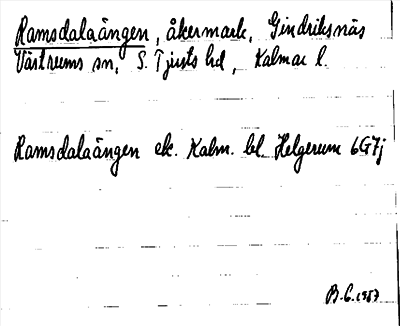 Ramsdalaängen, åkermark, Gindriksnäs
Västrums sn, S. Tjusts hd, Kalmar l.
Ramsdalaängen ek. Kalm. bl. Helgerum 6G7j
B.G. 1967